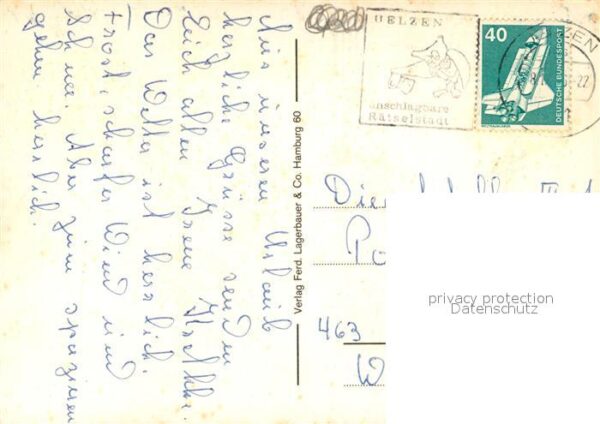 Aus unserem Urlaub
herzliche Grüsse senden
Euch allen Irene
Das Wetter ist herrlich.
Frost, scharfer Wind und
Schnee. Aber zum spazieren
gehen herrlich.
Verlag Ferd. Lagerbauer & Co. Hamburg 60
UELZEN
unschlagbare
Rätselstadt
40
DEUTSCHE BUNDESPORT
463
privacy protection
Datenschutz